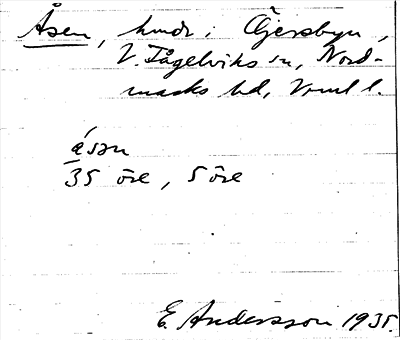 Åsen, hmdr i Öjersbyn,
V. Fågelviks sn, Nord-
marks hd, Vrml l.
åsən
35 öre, 5 öre
E. Andersson 1935.